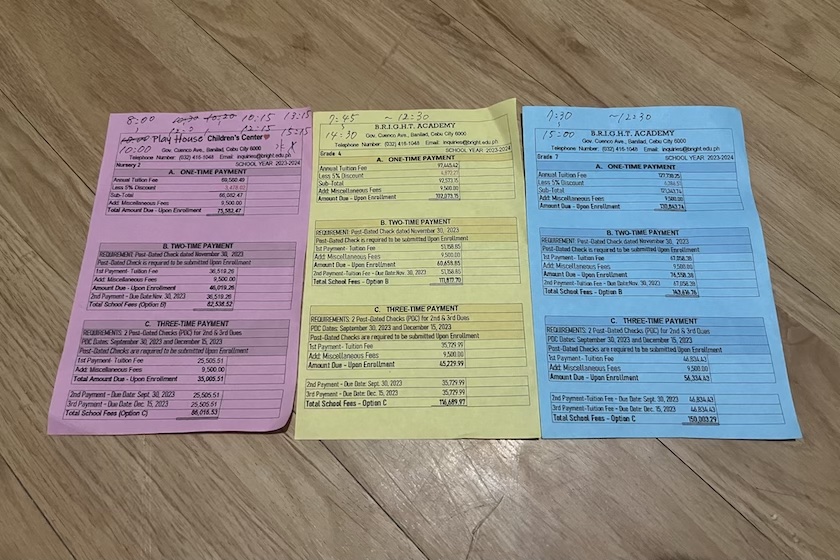 8:00 10:30 10:20 10:15 13:15
12:15 15:15
10:00 Play House Children's Center
Gov. Cuenco Ave., Banilad, Cebu City 6000
Telephone Number: (032) 416-1048 Email: inquiries@bright.edu.ph
Nursery 2 SCHOOL YEAR 2023-2024
A. ONE-TIME PAYMENT
Annual Tuition Fee 69,560.49
Less 5% Discount
Sub-Total 66,082.47
Add: Miscellaneous Fees 9,500.00
Total Amount Due - Upon Enrollment 75,582.47
B. TWO-TIME PAYMENT
REQUIREMENT: Post-Dated Check dated November 30, 2023
Post-Dated Check is required to be submitted Upon Enrollment
1st Payment- Tuition Fee 36,519.26
Add: Miscellaneous Fees 9,500.00
Amount Due - Upon Enrollment 46,019.26
2nd Payment - Due Date:Nov. 30, 2023 36,519.26
Total School Fees (Option B) 82,538.52
C. THREE-TIME PAYMENT
REQUIREMENTS: 2 Post-Dated Checks (PDC) for 2nd & 3rd Dues
PDC Dates: September 30, 2023 and December 15, 2023
Post-Dated Checks are required to be submitted Upon Enrollment
1st Payment - Tuition Fee 25,505.51
Add: Miscellaneous Fees 9,500.00
Total Amount Due - Upon Enrollment 35,005.51
2nd Payment - Due Date: Sept. 30, 2023 25,505.51
3rd Payment - Due Date: Dec. 15, 2023 25,505.51
Total School Fees (Option C) 86,016.53
7:45 ~12:30
14:30 B.R.I.G.H.T. ACADEMY
Gov. Cuenco Ave., Banilad, Cebu City 6000
Telephone Number: (032) 416-1048 Email: inquiries@bright.edu.ph
Grade 4 SCHOOL YEAR 2023-2024
A. ONE-TIME PAYMENT
Annual Tuition Fee
Less 5% Discount
Sub-Total 92,573.15
Add: Miscellaneous Fees 9,500.00
Amount Due - Upon Enrollment 102,073.15
B. TWO-TIME PAYMENT
REQUIREMENT: Post-Dated Check dated November 30, 2023
Post-Dated Check is required to be submitted Upon Enrollment
1st Payment - Tuition Fee 51,158.85
Add: Miscellaneous Fees 9,500.00
Amount Due - Upon Enrollment 60,658.85
2nd Payment-Tuition Fee - Due Date:Nov. 30, 2023 51,158.85
Total School Fees - Option B 111,817.70
C. THREE-TIME PAYMENT
REQUIREMENTS: 2 Post-Dated Checks (PDC) for 2nd & 3rd Dues
PDC Dates: September 30, 2023 and December 15, 2023
Post-Dated Checks are required to be submitted Upon Enrollment
1st Payment - Tuition Fee 35,729.99
Add: Miscellaneous Fees 9,500.00
Amount Due - Upon Enrollment 45,229.99
2nd Payment - Due Date: Sept. 30, 2023 35,729.99
3rd Payment - Due Date: Dec. 15, 2023 35,729.99
Total School Fees - Option C 116,689.97
7:30 ~12:30
15:00 B.R.I.G.H.T. ACADEMY
Gov. Cuenco Ave., Banilad, Cebu City 6000
Telephone Number: (032) 416-1048 Email: inquiries@bright.edu.ph
Grade 7 SCHOOL YEAR 2023-2024
A. ONE-TIME PAYMENT
Annual Tuition Fee
Less 5% Discount
Sub-Total 121,343.74
Add: Miscellaneous Fees 9,500.00
Amount Due - Upon Enrollment 130,843.74
B. TWO-TIME PAYMENT
REQUIREMENT: Post-Dated Check dated November 30, 2023
Post-Dated Check is required to be submitted Upon Enrollment
1st Payment-Tuition Fee 67,058.38
Add: Miscellaneous Fees 9,500.00
Amount Due - Upon Enrollment 76,558.38
2nd Payment-Tuition Fee - Due Date:Nov. 30, 2023 67,058.38
Total School Fees - Option B 143,616.76
C. THREE-TIME PAYMENT
REQUIREMENTS: 2 Post-Dated Checks (PDC) for 2nd & 3rd Dues
PDC Dates: September 30, 2023 and December 15, 2023
Post-Dated Checks are required to be submitted Upon Enrollment
1st Payment - Tuition Fee 46,834.43
Add: Miscellaneous Fees 9,500.00
Amount Due - Upon Enrollment 56,334.43
2nd Payment-Tuition Fee - Due Date: Sept. 30, 2023 46,834.43
3rd Payment-Tuition Fee - Due Date: Dec. 15, 2023 46,834.43
Total School Fees - Option C 150,003.29